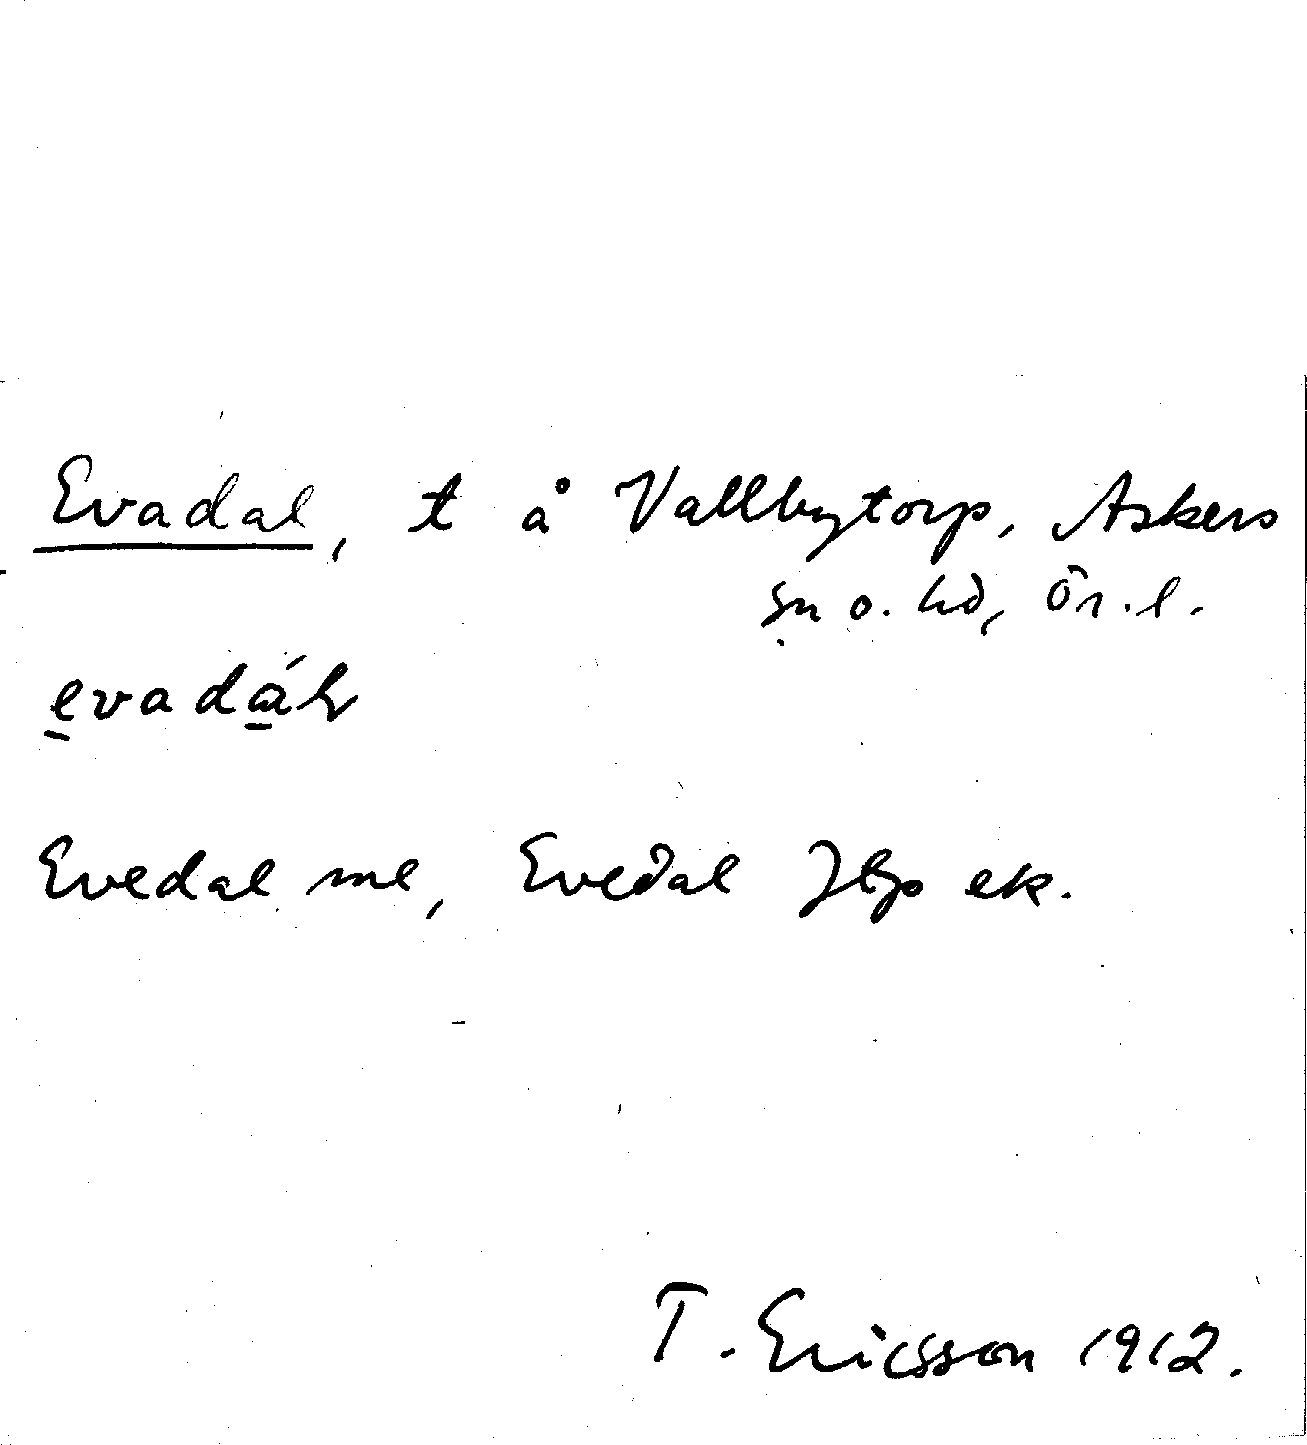 Evadal, t å Vallbytorp, Askers
sn o. hd, Ör. l.
evadál
Evedal me, Evedal Jbp ek.
T. Ericsson 1912.